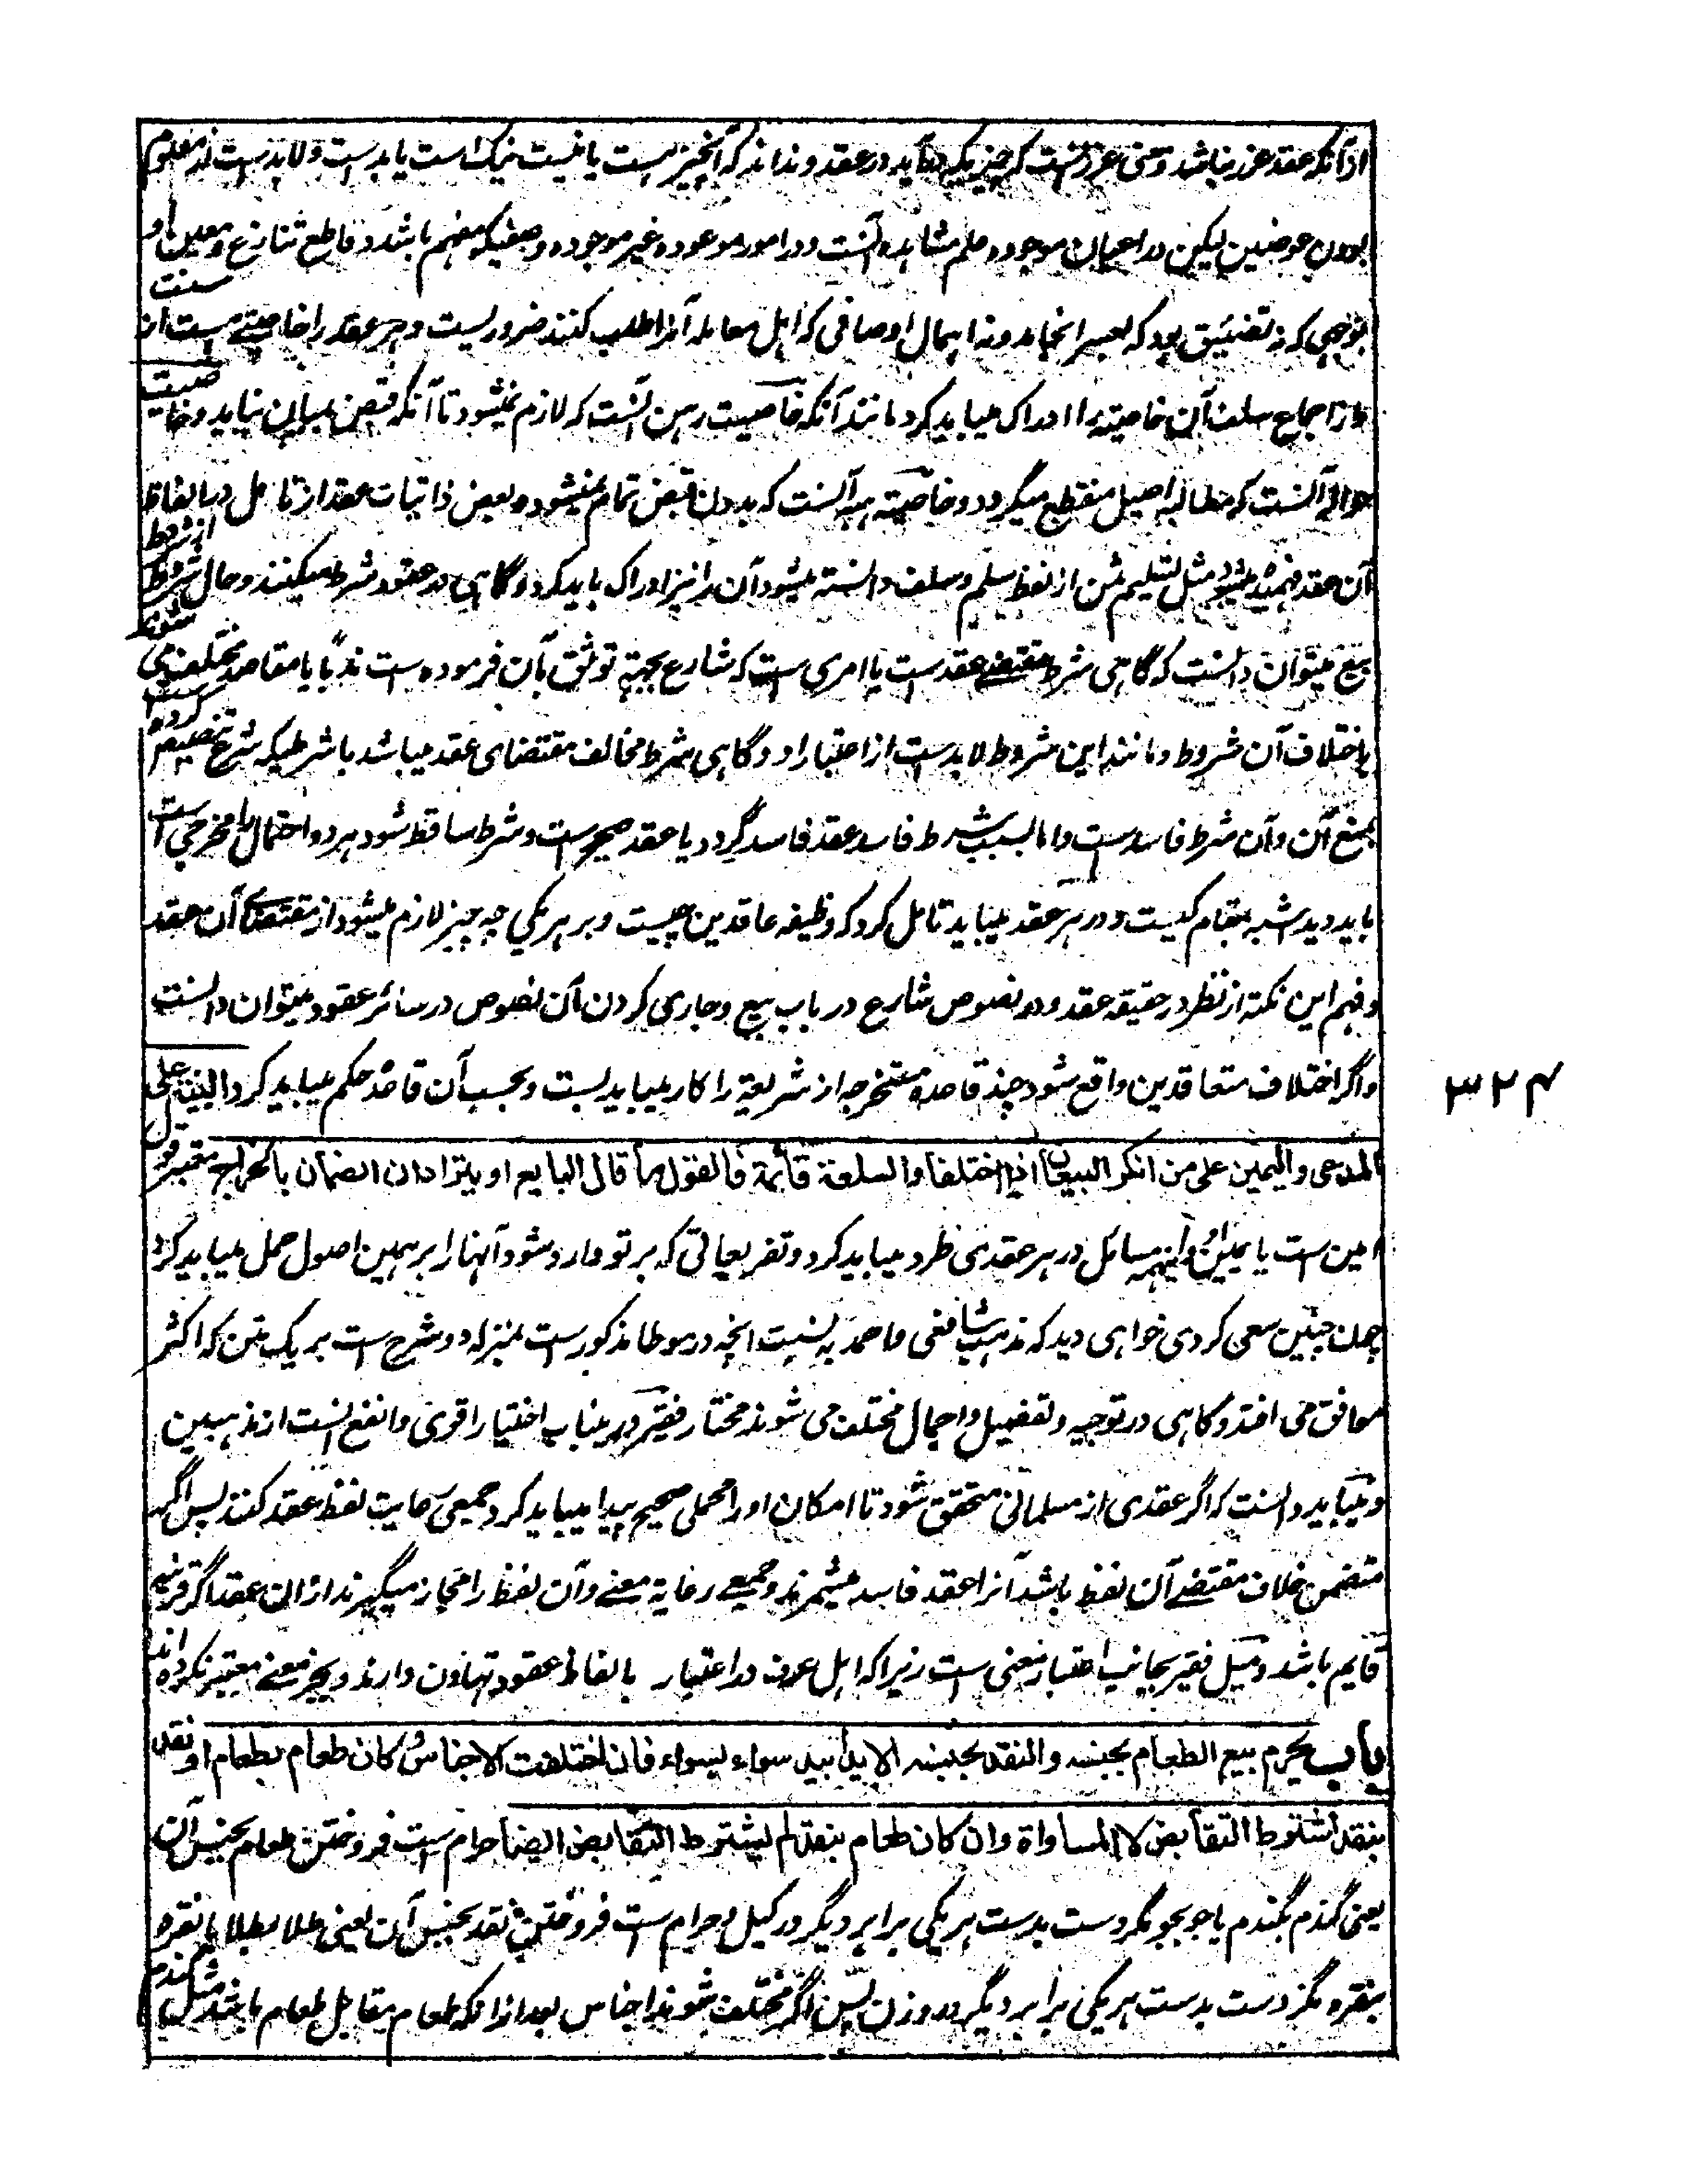 ازآنکه عقد غرر نباشد و معنی غرر آنست که چیزیکه درآید در عقد و نداند که آنچیز هست یا نیست نیک است یا بدست و لابد ست از معلوم
بودن عوضین لیکن در اعیان موجوده علم مشاهده آنست و در امور موعوده و غیر موجوده وصفیکه مفهم باشد و قاطع تنازع و معین او
بوجهی که نه تضییق بود که بعسر انجامد و نه اهمال اوصافی که اهل معامله آنرا طلب کنند ضروریست و هر عقد را خاصیتے هست از سنت
و از اجماع سلف آن خاصیته را ادراک میباید کرد مانند آنکه خاصیت رهن آنست که لازم نمیشود تا آنکه قبض بمیان نیاید و خاصیت
حواله آنست که مطالبه اصیل منقطع میگردد و خاصیته هبه آنست که بدون قبض تمام نمیشود و بعض ذاتیات عقد از تامل در الفاظ
آن عقد فهمیده میشود مثل تسلیم ثمن از لفظ سلم و سلف دانسته میشود آن را نیز ادراک باید کرد و گاهی در عقود شرط میکنند و حال شروط از شروط
بیع میتوان دانست که گاهی شرط مقتضے عقدست یا امری ست که شارع بجهة توثق بآن فرموده ست ندبًا یا مقاصد مختلف می شوند
باختلاف آن شروط و مانند این شروط لابدست از اعتبار او و گاهی شرط مخالف مقتضای عقد میباشد یا شرطیکه شرع تصمیم کرده ست
بمنع آن و آن شرط فاسد ست و اما بسبب شرط فاسد عقد فاسد گردد یا عقد صحیح ست و شرط ساقط شود هر دو احتمال را مخرجی ست
باید دید اشبه بمقام کیست و در هر عقد میباید تامل کرد که وظیفه عاقدین چیست و بر هر یکی چه چیز لازم میشود از مقتضای آن عقد
و فهم این نکته از نظر در حقیقه عقد و در نصوص شارع در باب بیع و جاری کردن آن نصوص در سائر عقود میتوان دانست
و اگر اختلاف متعاقدین واقع شود چند قاعده مستخرجه از شریعة را کار میباید بست و بحسب آن قاعده حکم میباید کرد البینة علی
المدعی والیمین علی من انکر البیعان اذا اختلفا والسلعة قائمة فالقول ما قال البایع او یترادان الضمان بالخراج معتبر قول
امین ست با یمین او اینهمه مسائل در هر عقدی طرد میباید کرد و تفریعاتی که بر تو وارد شود آنها را بر همین اصول حمل میباید کرد
چون چنین سعی کردی خواهی دید که مذهب شافعی و احمد به نسبت انچه در موطا مذکور ست بمنزله دو شرح ست بر یک متن که اکثر
موافق می افتد و گاهی در توجیه و تفصیل و اجمال مختلف می شوند مختار فقیر درینباب اختیار اقوی و انفع آنست از مذهبین
و میباید دانست که اگر عقدی از مسلمانی متحقق شود تا امکان او را محملی صحیح پیدا میباید کرد جمیعی رعایت لفظ عقد کنند پس اگر
متضمن خلاف مقتضے آن لفظ باشد آنرا عقد فاسد میشمرند و جمیعے رعایة معنے و آن لفظ را مجاز میگیرند از ان عقد اگر قرینه
قایم باشد و میل فقیر بجانب اعتبار معنی ست زیرا که اهل عرف در اعتبار بالفاظ عقود تهاون دارند و بجز معنے معتبر نکرده اند
باب یحرم بیع الطعام بجنسه والنقد بجنسه الا یدا بید سواء بسواء فان اختلفت الاجناس کان طعام بطعام او نقد
بنقد اشترط التقابض لا المساواة وان کان طعام بنقد لم یشترط التقابض ایضا حرام ست فروختن طعام بجنس آن
یعنی گندم بگندم یا جو بجو مگر دست بدست هر یکی برابر دیگر در کیل و حرام ست فروختن نقد بجنس آن یعنی طلا بطلا یا نقره
بنقره مگر دست بدست هر یکی برابر دیگر در وزن پس اگر مختلف شوند اجناس بعد ازانکه طعام مقابل طعام باشد مثل گندم
۳۲۴